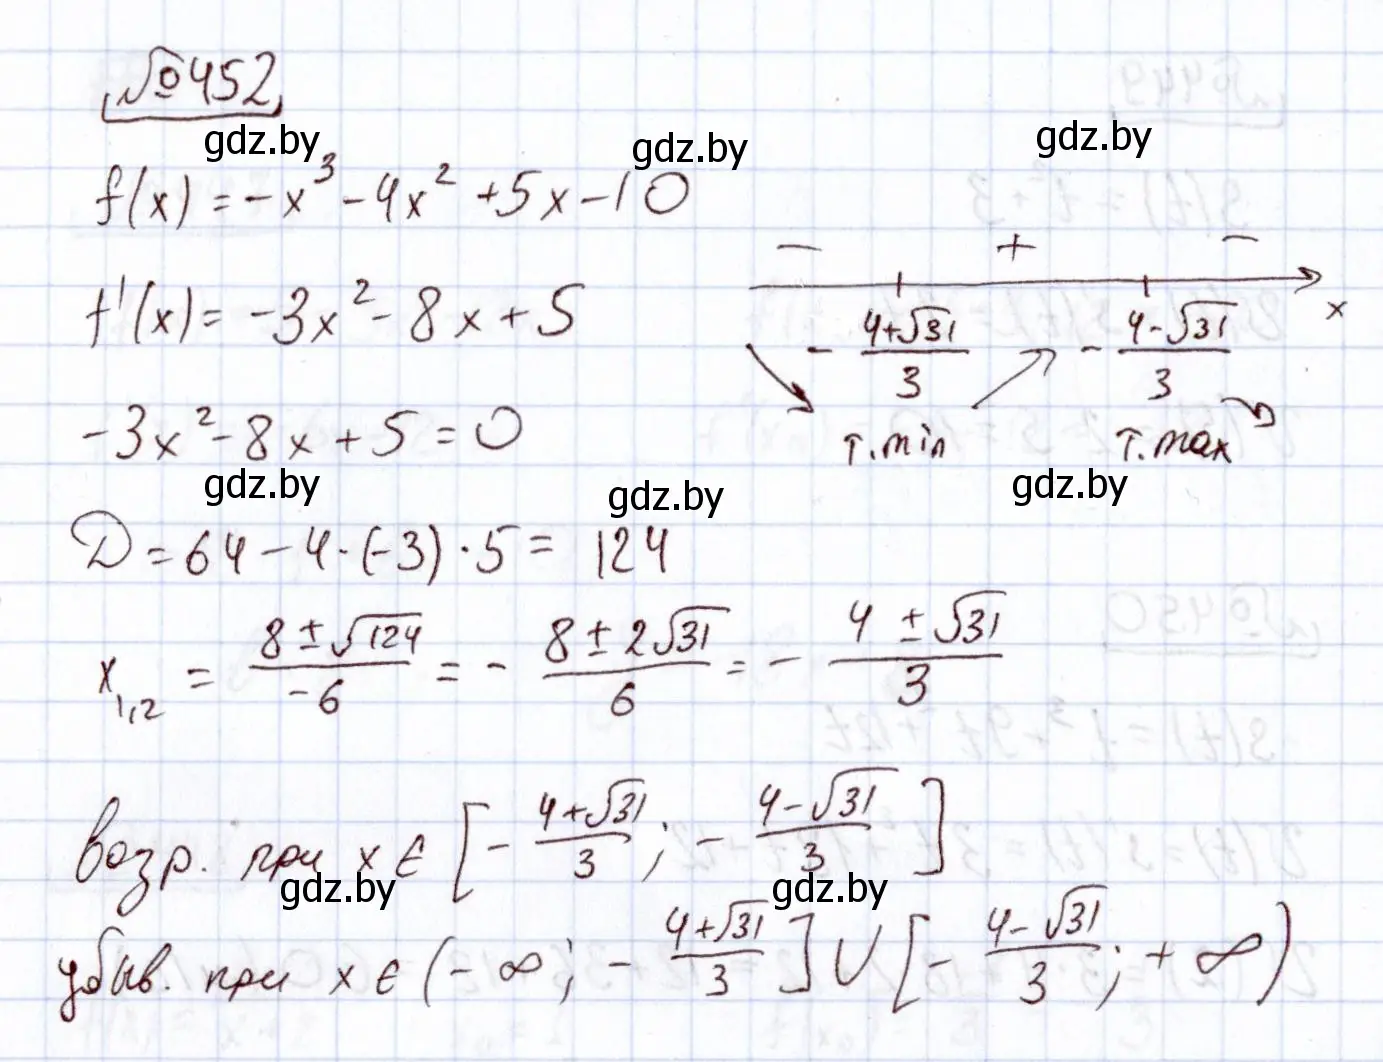 №452
gdz.by gdz.by gdz.by
f(x) = -x³ - 4x² + 5x - 10
f'(x) = -3x² - 8x + 5
- + -
x
- (4+√31)/3 - (4-√31)/3
т.min т.max
-3x² - 8x + 5 = 0
gdz.by gdz.by gdz.by
D = 64 - 4·(-3)·5 = 124
x₁,₂ = (8 ± √124)/(-6) = - (8 ± 2√31)/6 = - (4 ± √31)/3
возр. при x ∈ [- (4+√31)/3; - (4-√31)/3]
gdz.by gdz.by
убыв. при x ∈ (-∞; - (4+√31)/3] ∪ [- (4-√31)/3; +∞)